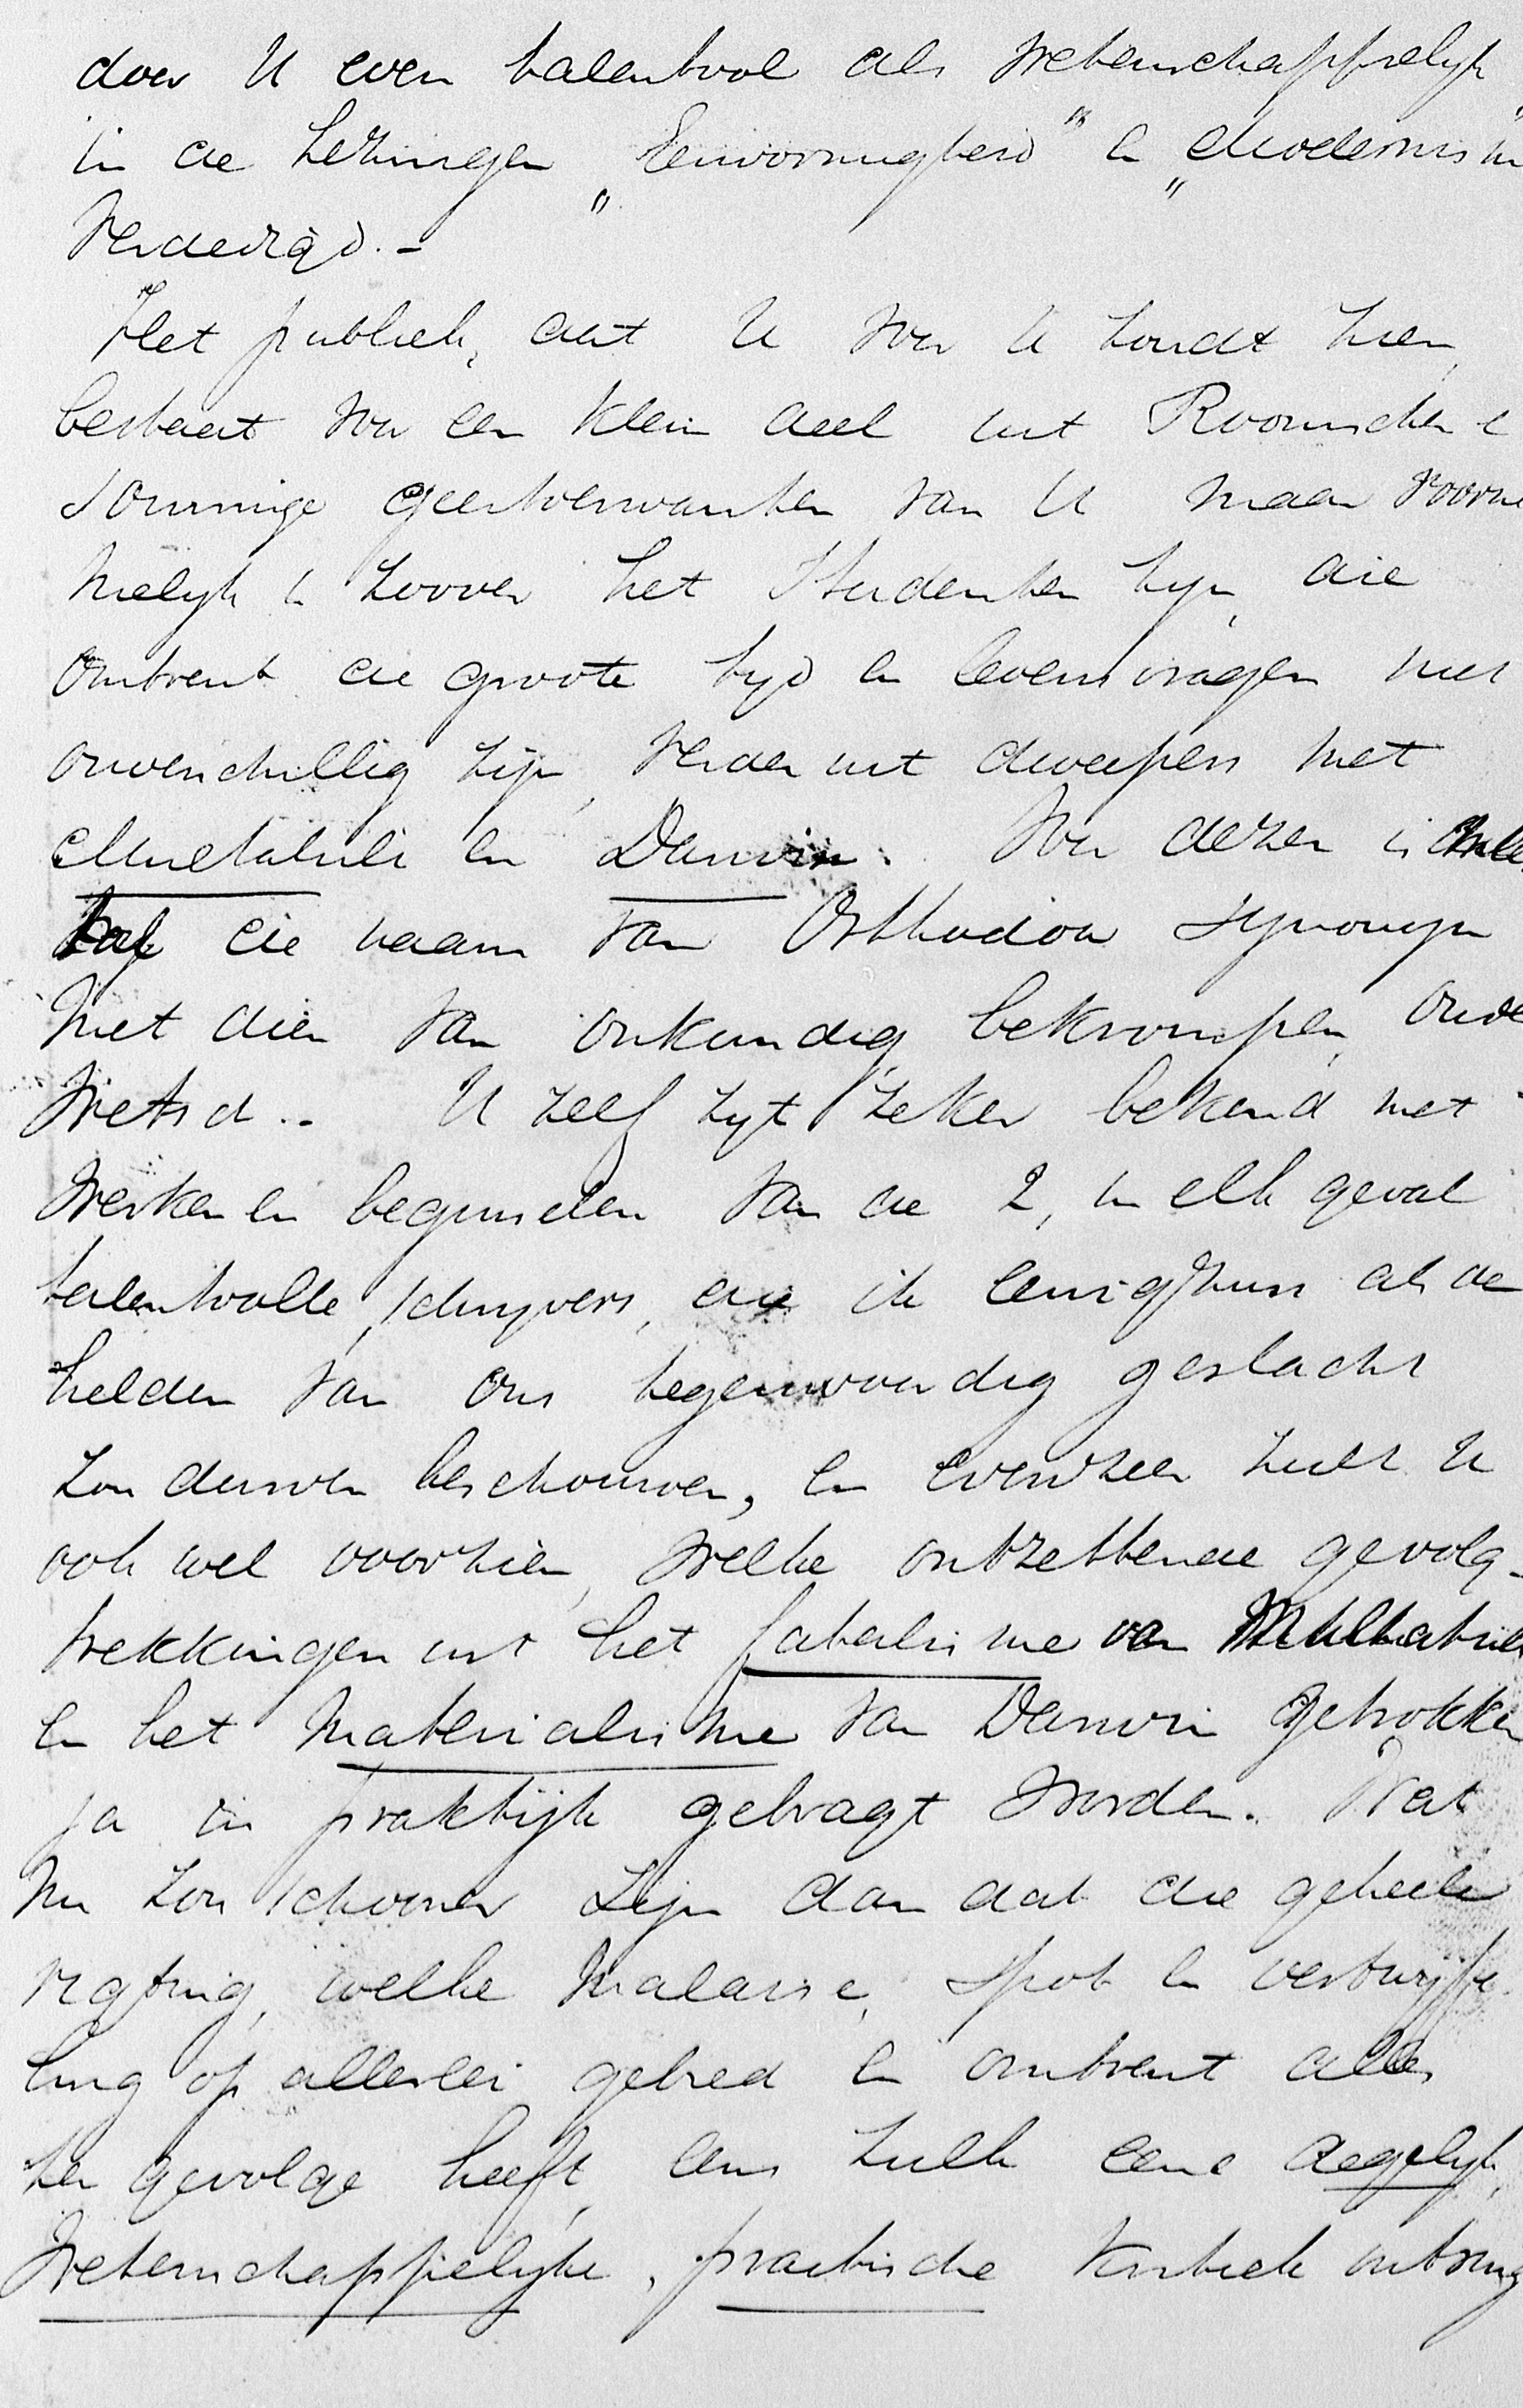 door U even talentvol als wetenschappelyk
in de Lezingen „Eenvormigheid" en „Modernisme
verdedigd. –
Het publiek, dat U voor U houdt hier,
bestaat voor een klein deel uit Roomschen e
sommige geestverwanten van U maar voorna
melyk in zoover het Studenten zyn, die
omtrent de groote tyd en levensvragen niet
onverschillig zijn, verder uit dweepers met
Multatuli en Darwin. Voor dezen is
de naam van Orthodox synonym
met dien van onkundig, bekrompen, oude
wetsd.. U zelf zyt zeker bekend met
werken en beginselen van de 2, in elk geval
talentvolle schryvers, die ik eenigzins als de
helden van ons tegenwoordig geslacht
zou durven beschouwen, en evenzeer zult U
ook wel voorzien, welke ontzettende gevolg-
trekkingen uit het fatalisme van Multatuli
en het Materialisme van Darwin getrokken
ja in praktijk gebragt worden. Wat
nu zou schooner zijn dan dat die geheele
rigting, welke malaise, spot en vertwijfe
ling op allerlei gebied en omtrent alles
ten gevolge heeft, eens zulk eene degelyk,
Wetenschappelyke, practische kritiek ontving